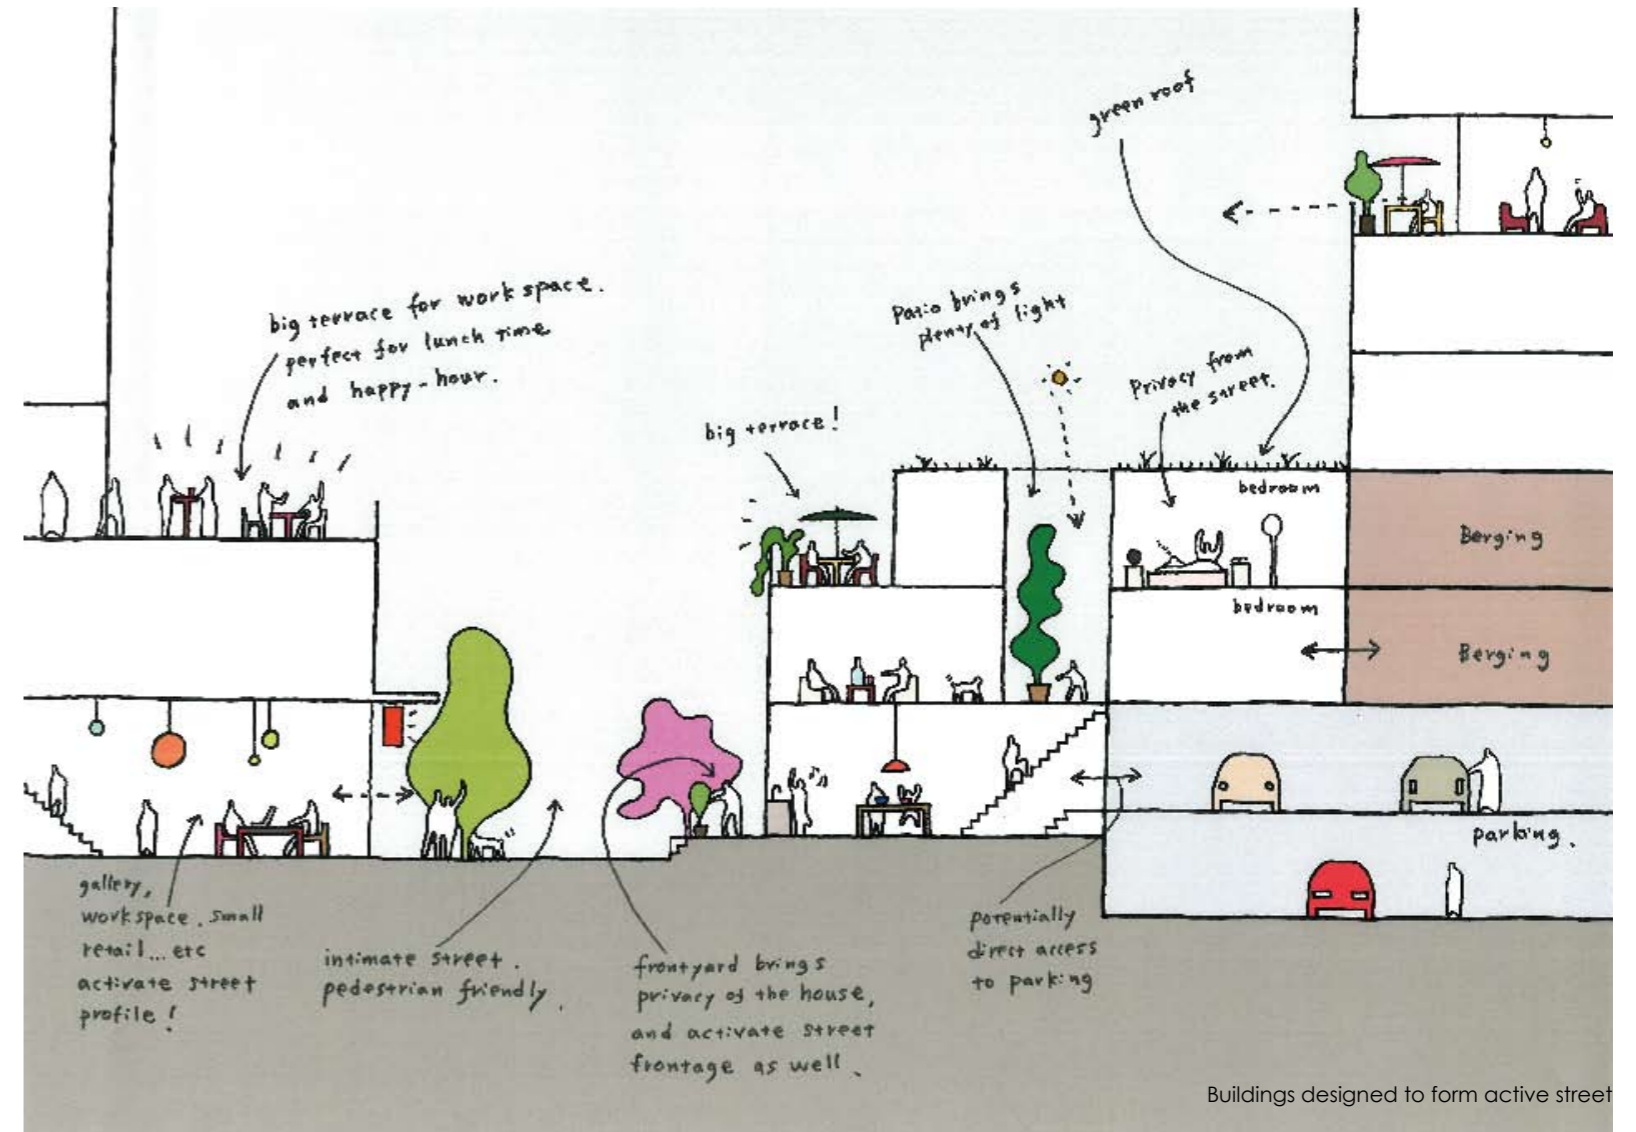 green roof
big terrace for work space.
perfect for lunch time
and happy-hour.
Patio brings
plenty of light
Privacy from
the street.
big terrace!
bedroom
Berging
bedroom
Berging
parking.
gallery,
workspace. small
retail...etc
activate street
profile!
intimate street.
pedestrian friendly.
frontyard brings
privacy of the house,
and activate street
frontage as well.
potentially
direct access
to parking
Buildings designed to form active street